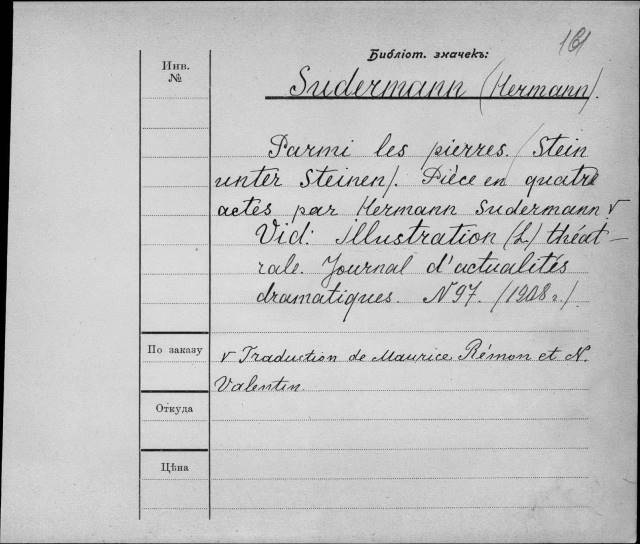 161
Библіот. значекъ:
Инв.
№
Sudermann (Hermann).
Parmi les pierres. (Stein
unter Steinen). Pièce en quatre
actes par Hermann Sudermann v
Vid: illustration (L.) théat-
rale. Journal d'actualités
dramatiques. N 97. (1908 г.).
По заказу
v Traduction de Maurice Rémon et N.
Valentin.
Откуда
Цѣна